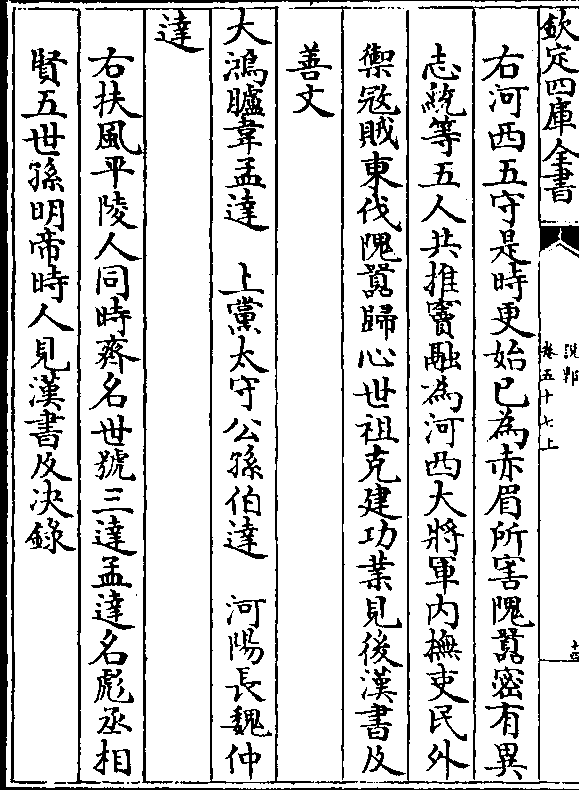 欽定四庫全書
說郛
卷五十七上
十三
右河西五守是時更始已為赤眉所害隗囂密有異
志統等五人共推竇融為河西大將軍內撫吏民外
禦宼賊東伐隗囂歸心世祖克建功業見後漢書及
善文
大鴻臚韋孟達 上黨太守公孫伯達 河陽長魏仲
達
右扶風平陵人同時齊名世號三達孟達名彪丞相
賢五世孫明帝時人見漢書及决錄